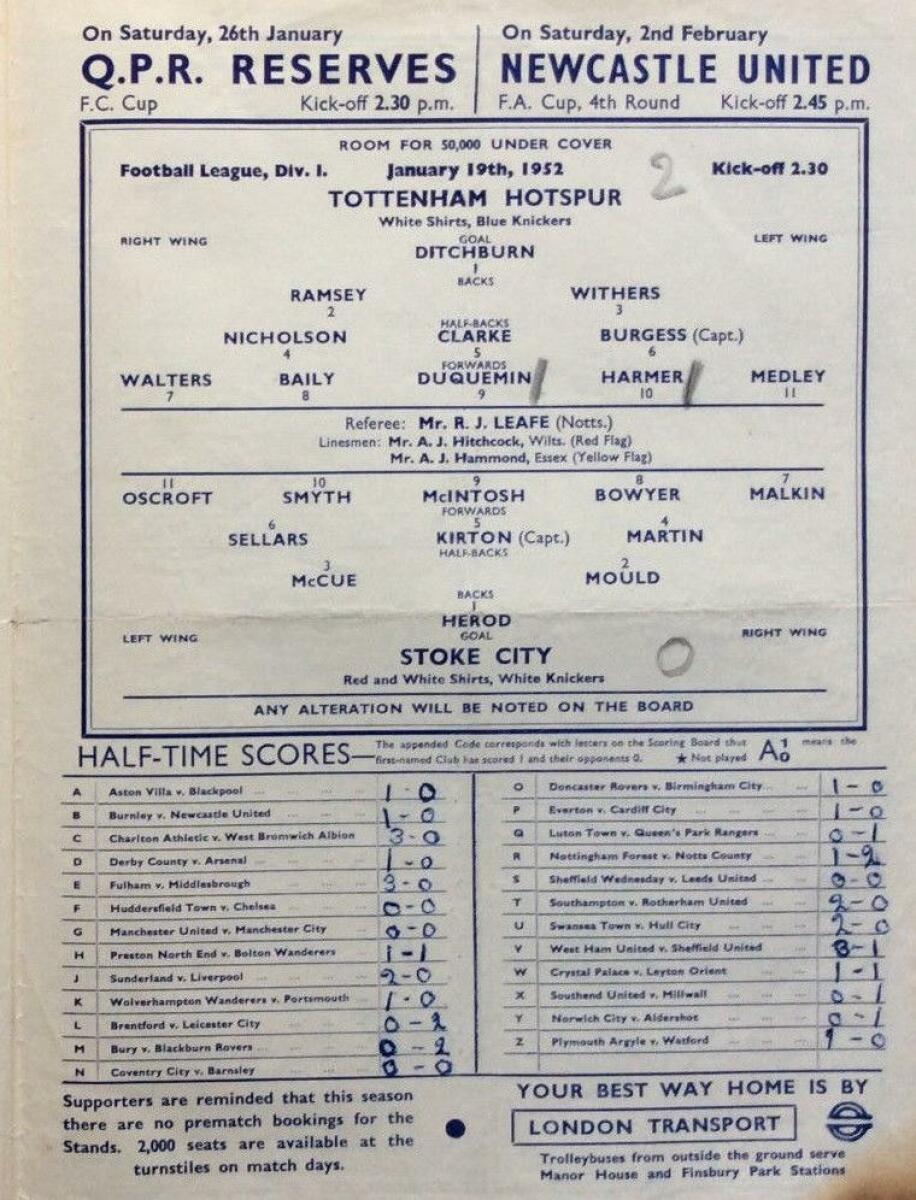 On Saturday, 26th January
Q.P.R. RESERVES
F.C. Cup Kick-off 2.30 p.m.
On Saturday, 2nd February
NEWCASTLE UNITED
F.A. Cup, 4th Round Kick-off 2.45 p.m.
ROOM FOR 50,000 UNDER COVER
Football League, Div. I. January 19th, 1952 Kick-off 2.30
TOTTENHAM HOTSPUR 2
White Shirts, Blue Knickers
RIGHT WING GOAL LEFT WING
DITCHBURN
1
BACKS
RAMSEY WITHERS
2 3
HALF-BACKS
NICHOLSON CLARKE BURGESS (Capt.)
4 5 6
FORWARDS
WALTERS BAILY DUQUEMIN / HARMER / MEDLEY
7 8 9 10 11
Referee: Mr. R. J. LEAFE (Notts.)
Linesmen: Mr. A. J. Hitchcock, Wilts. (Red Flag)
Mr. A. J. Hammond, Essex (Yellow Flag)
11 10 9 8 7
OSCROFT SMYTH McINTOSH BOWYER MALKIN
FORWARDS
6 5 4
SELLARS KIRTON (Capt.) MARTIN
HALF-BACKS
3 2
McCUE MOULD
BACKS
1
HEROD
LEFT WING GOAL RIGHT WING
STOKE CITY 0
Red and White Shirts, White Knickers
ANY ALTERATION WILL BE NOTED ON THE BOARD
HALF-TIME SCORES—The appended Code corresponds with letters on the Scoring Board thus A 1 0 means the
first-named Club has scored 1 and their opponents 0. ★ Not played
A Aston Villa v. Blackpool ... 1-0
B Burnley v. Newcastle United 1-0
C Charlton Athletic v. West Bromwich Albion 3-0
D Derby County v. Arsenal ... 1-0
E Fulham v. Middlesbrough ... 3-0
F Huddersfield Town v. Chelsea ... 0-0
G Manchester United v. Manchester City ... 0-0
H Preston North End v. Bolton Wanderers ... 1-1
J Sunderland v. Liverpool ... 2-0
K Wolverhampton Wanderers v. Portsmouth ... 1-0
L Brentford v. Leicester City ... 0-2
M Bury v. Blackburn Rovers ... 0-2
N Coventry City v. Barnsley ... 0-0
O Doncaster Rovers v. Birmingham City... 1-0
P Everton v. Cardiff City ... 1-0
Q Luton Town v. Queen's Park Rangers ... 0-1
R Nottingham Forest v. Notts County ... 1-2
S Sheffield Wednesday v. Leeds United ... 0-0
T Southampton v. Rotherham United ... 2-0
U Swansea Town v. Hull City ... 2-0
V West Ham United v. Sheffield United ... 3-1
W Crystal Palace v. Leyton Orient ... 1-1
X Southend United v. Millwall ... 0-1
Y Norwich City v. Aldershot ... 0-1
Z Plymouth Argyle v. Watford ... 1-0
Supporters are reminded that this season
there are no prematch bookings for the
Stands. 2,000 seats are available at the
turnstiles on match days.
YOUR BEST WAY HOME IS BY
LONDON TRANSPORT
Trolleybuses from outside the ground serve
Manor House and Finsbury Park Stations